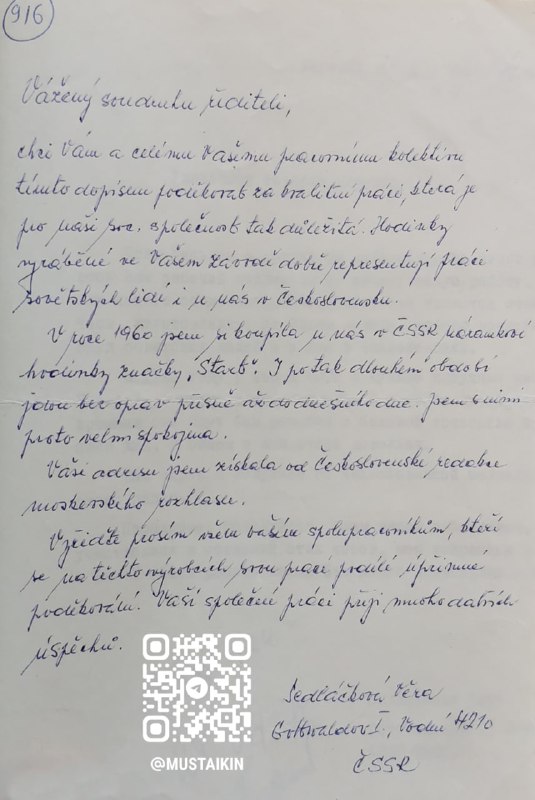 916
Vážený soudruhu řediteli,
chci Vám a celému Vašemu pracovnímu kolektivu
tímto dopisem poděkovat za kvalitní práci, která je
pro naši soc. společnost tak důležitá. Hodinky
vyráběné ve Vašem závodě dobře representují práci
sovětských lidí i u nás v Československu.
V roce 1960 jsem si koupila u nás v ČSSR náramkové
hodinky značky „Start". I po tak dlouhém období
jdou bez oprav přesně až do dnešního dne. Jsem s nimi
proto velmi spokojena.
Vaši adresu jsem získala od Československé redakce
moskevského rozhlasu.
Vyřiďte prosím všem vašim spolupracovníkům, kteří
se na těchto výrobcích svou prací podílí upřímné
poděkování. Vaší společné práci přeji mnoho dalších
úspěchů.
Sedláčková Věra
Gottwaldov I., Vodní 4210
ČSSR
@MUSTAIKIN